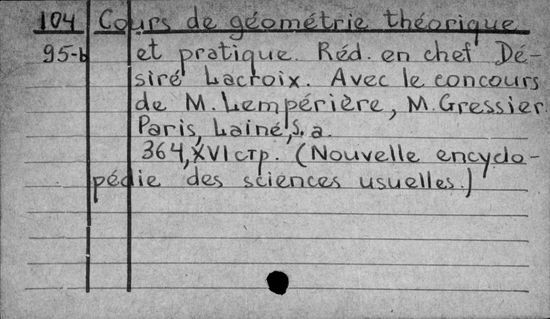 104 Cours de géométrie théorique
95-b et pratique. Réd. en chef Dé-
siré Lacroix. Avec le concours
de M. Lempérière, M. Gressier.
Paris, Lainé, s. a.
364, XVI стр. (Nouvelle encyclo-
pédie des sciences usuelles.)